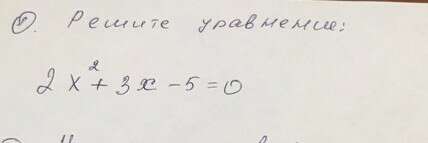 Решите уравнение:
2x²+3x-5=0